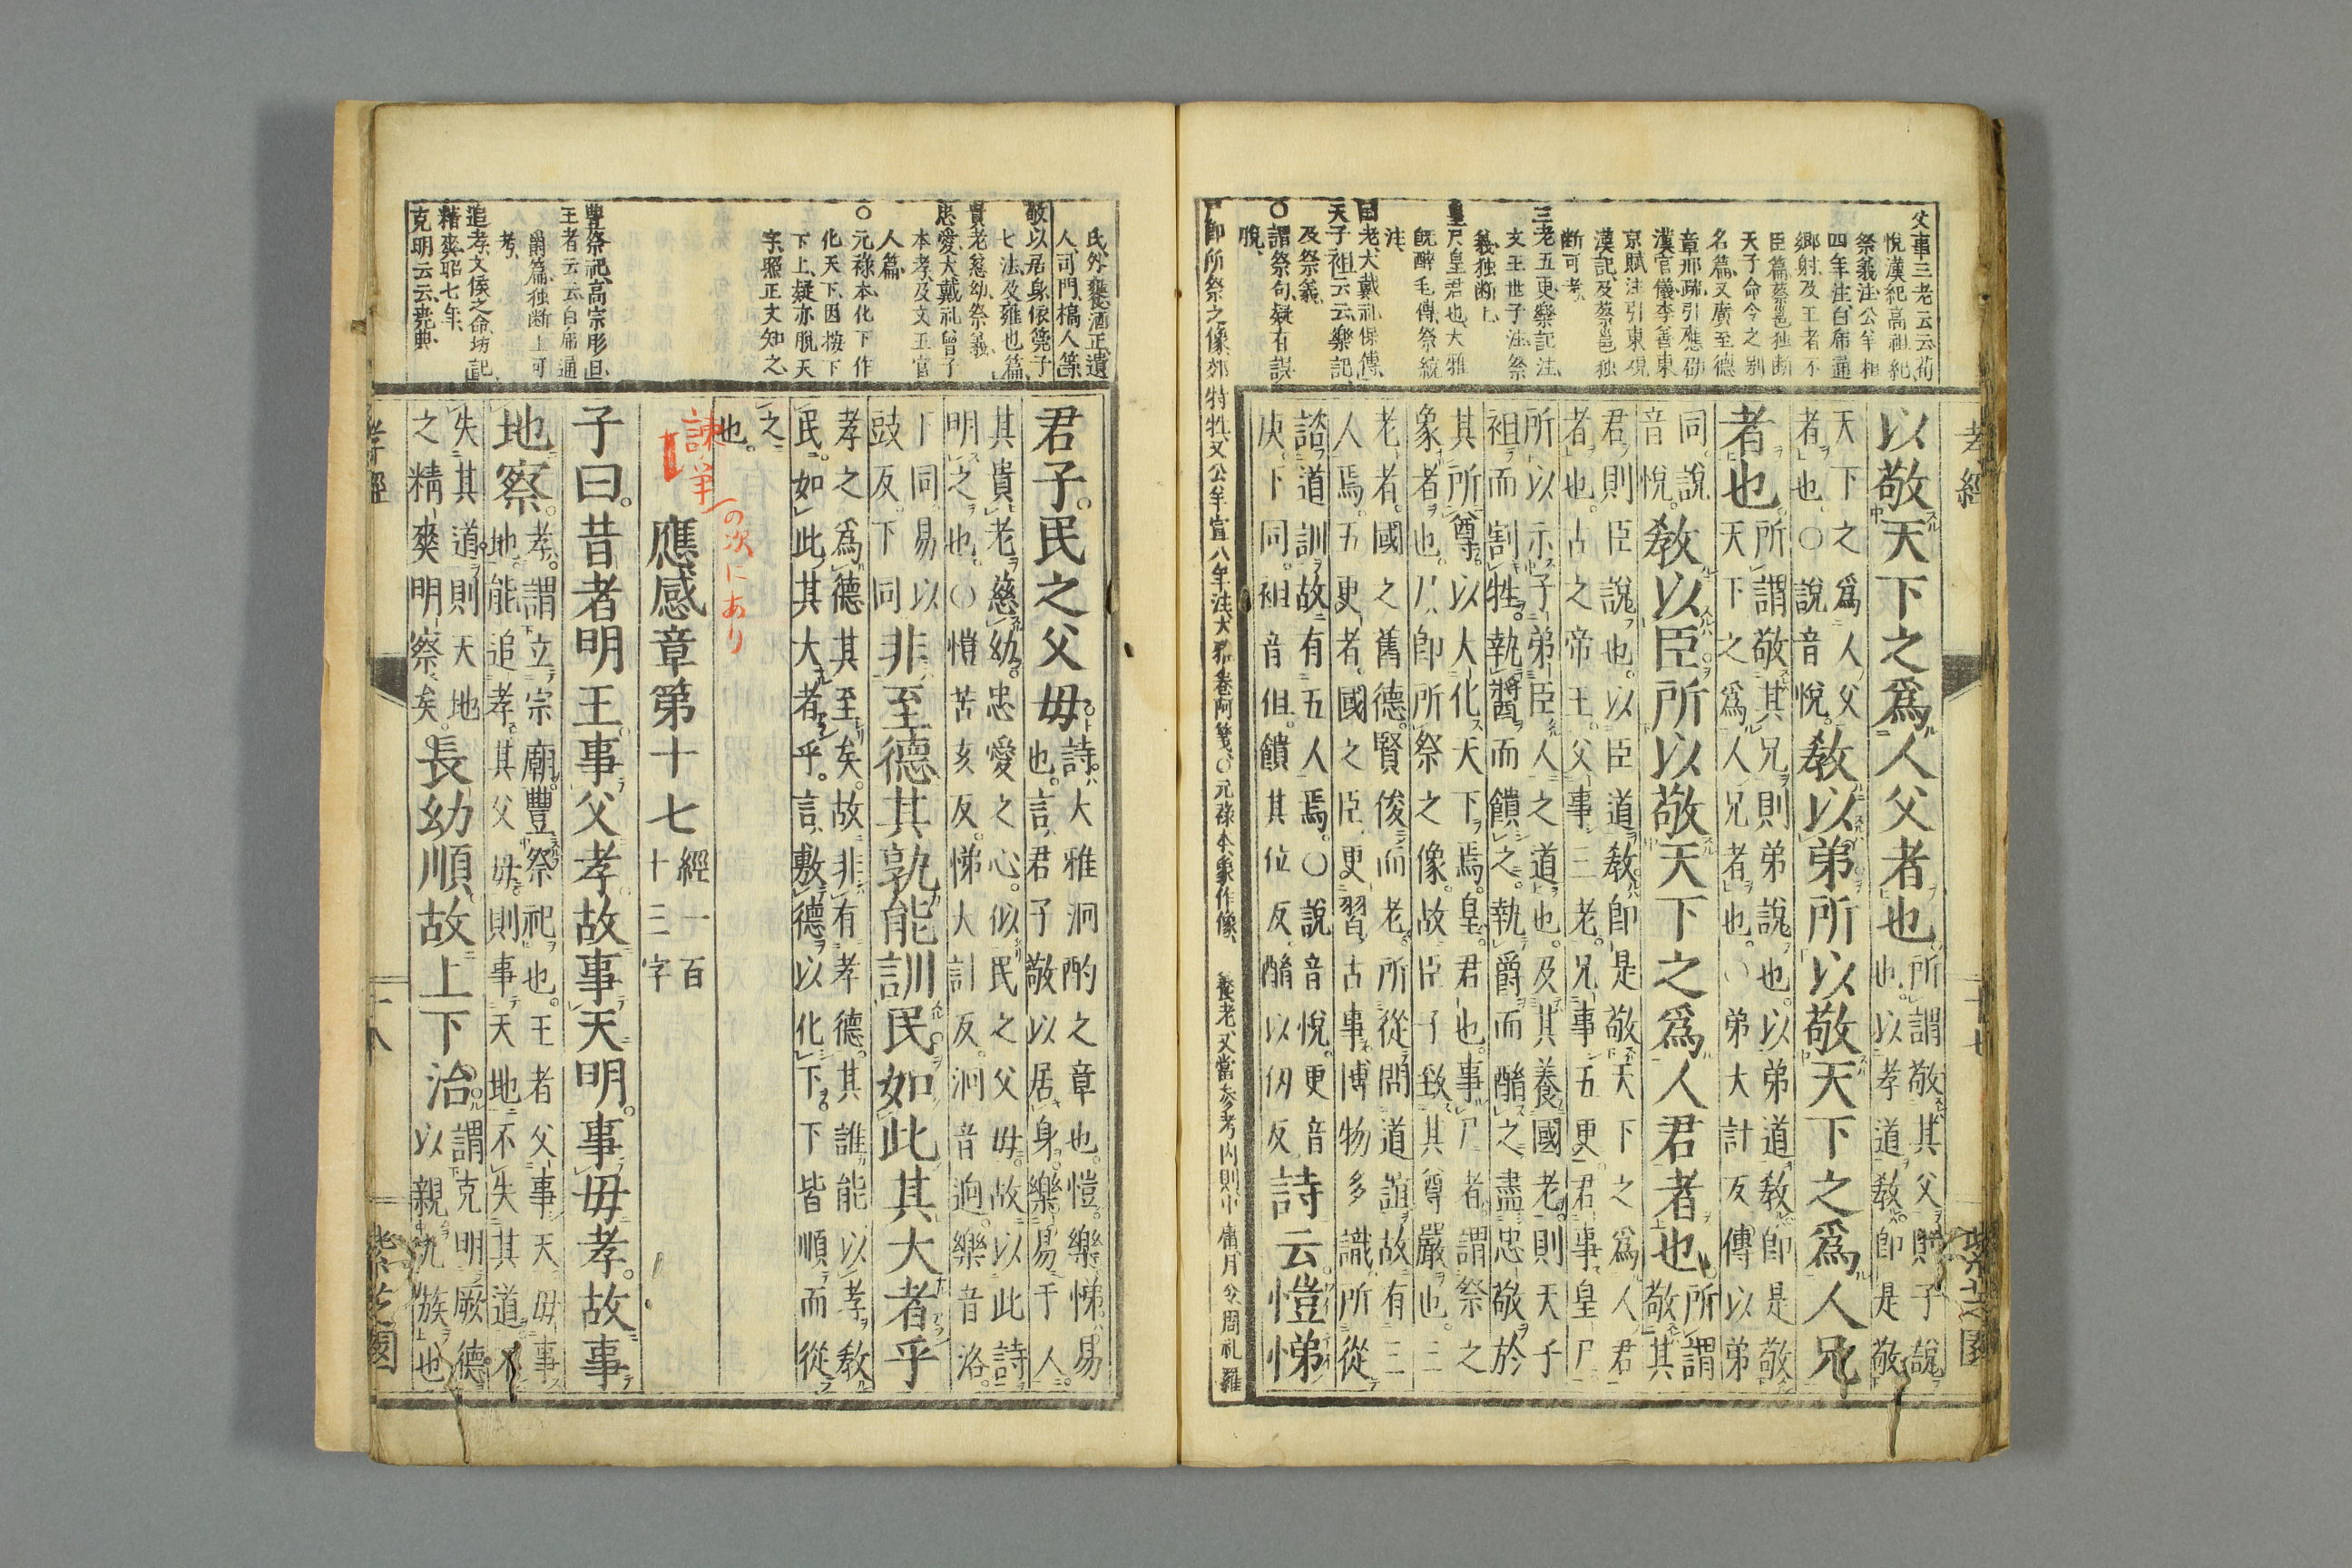 父事三老云云荀
悅漢紀高祖紀
祭義注公羊桓
四年注白席通
鄉射及王者不
臣篇蔡邕独断
天子命令之别
名篇又廣至德
章邢疏引應劭
漢官儀李善東
京賦注引東覌
漢記及蔡邕独
断可考
三老五更樂記注
文王世子注祭
義独断上
皇尸皇君也大雅
旣醉毛傳祭統
注
国老大戴礼保傳
天子袒云云樂記
及祭義
〇謂祭句疑有誤
脫
以敬天下之爲人父者也所謂敬其父則子說
也以孝道敎即是敬
天下之爲人父
者也〇說音悅敎以弟所以敬天下之爲人兄
者也所謂敬其兄則弟說也以弟道敎即是敬
天下之爲人兄者也〇弟大計反傳以弟
同說
音悅敎以臣所以敬天下之爲人君者也所謂
敬其
君則臣說也以臣道敎即是敬天下之爲人君
者也古之帝王父事三老兄事五更君事皇尸
所以示子弟臣人之道也及其養國老則天子
袒而割牲執醬而饋之執爵而酳之盡忠敬於
其所尊以大化天下焉皇君也事尸者謂祭之
象者也尸即所祭之像故臣子致其尊嚴也三
老者國之舊德賢俊而老所從問道誼故有三
人焉五更者國之臣更習古事博物多識所從
諮道訓故有五人焉〇說音悅更音
庚下同袒音但饋其位反酳以刃反詩云愷悌
孝經
二十七
紫芝園
尸即所祭之像郊特牲又公羊宣八年注大雅卷阿箋〇元祿本象作像
養老又當参考内則中庸月令周礼羅
氏外饔酒正遺
人司門槁人等
敬以居身依筦子
七法及雍也篇
貴老慈幼祭義
忠愛大戴礼曾子
本孝及文王官
人篇
〇元祿本化下作
化天下因按下
下上疑亦脫天
字照正文知之
豊祭祀高宗肜日
王者云云白席通
爵篇独断上可
考
追孝文侯之命坊記
精爽昭七年
克明云云堯典
君子民之父母詩大雅泂酌之章也愷樂悌易
也言君子敬以居身樂易于人
其貴老慈幼忠愛之心似民之父母故以此詩
明之也〇愷苦亥反悌大計反泂音迥樂音洛
下同易以
豉反下同非至德其孰能訓民如此其大者乎
孝之爲德其至矣故非有孝德其誰能以孝敎
民如此其大者乎言敷德以化下下皆順而從
之
也
諫筭ノ
の次にあり
應感章第十七經一百
十三字
子曰昔者明王事父孝故事天明事母孝故事
地察孝謂立宗廟豐祭祀也王者父事天母事
地能追孝其父母則事天地不失其道不
失其道則天地
之精爽明察矣長幼順故上下治謂克明厥德
以親九族也
孝經
二十八
紫芝園